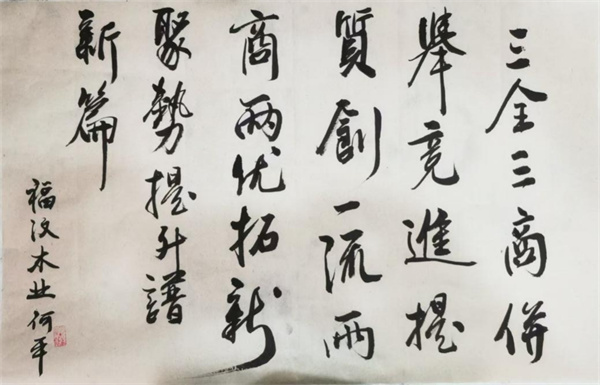 三全三商併
舉竞進提
質創一流两
商两优拓新
聚勢提升譜
新篇
福汶木业何平